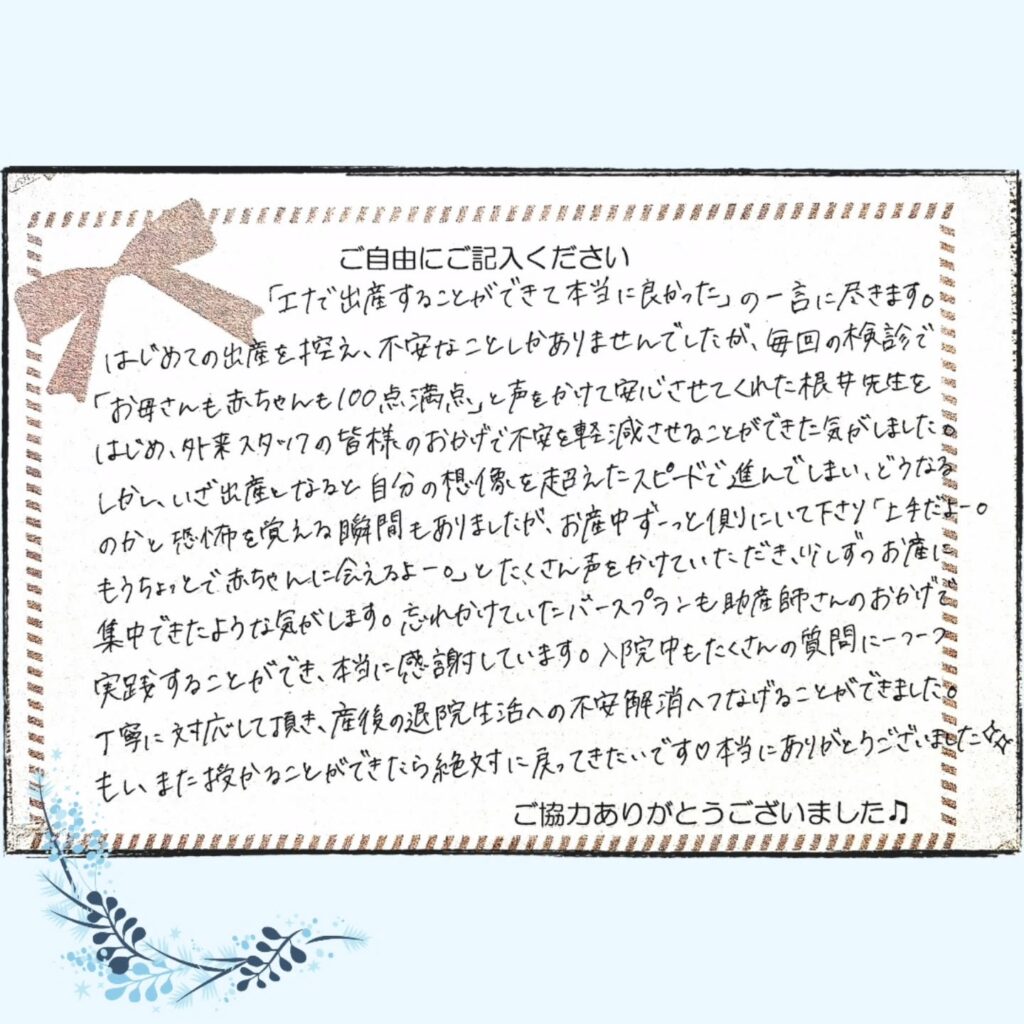 ご自由にご記入ください
「エナで出産することができて本当に良かった」の一言に尽きます。
はじめての出産を控え、不安なことしかありませんでしたが、毎回の検診で
「お母さんも赤ちゃんも100点満点」と声をかけて安心させてくれた根井先生を
はじめ、外来スタッフの皆様のおかげで不安を軽減させることができた気がしました。
しかし、いざ出産となると自分の想像を超えたスピードで進んでしまい、どうなる
のかと恐怖を覚える瞬間もありましたが、お産中ずーっと側にいて下さり「上手だよー。
もうちょっとで赤ちゃんに会えるよー。」とたくさん声をかけていただき、少しずつお産に
集中できたような気がします。忘れかけていたバースプランも助産師さんのおかげで
実践することができ、本当に感謝しています。入院中もたくさんの質問に一つ一つ
丁寧に対応して頂き、産後の退院生活への不安解消へつなげることができました。
もし、また授かることができたら絶対に戻ってきたいです♡本当にありがとうございました✧✧
ご協力ありがとうございました♫